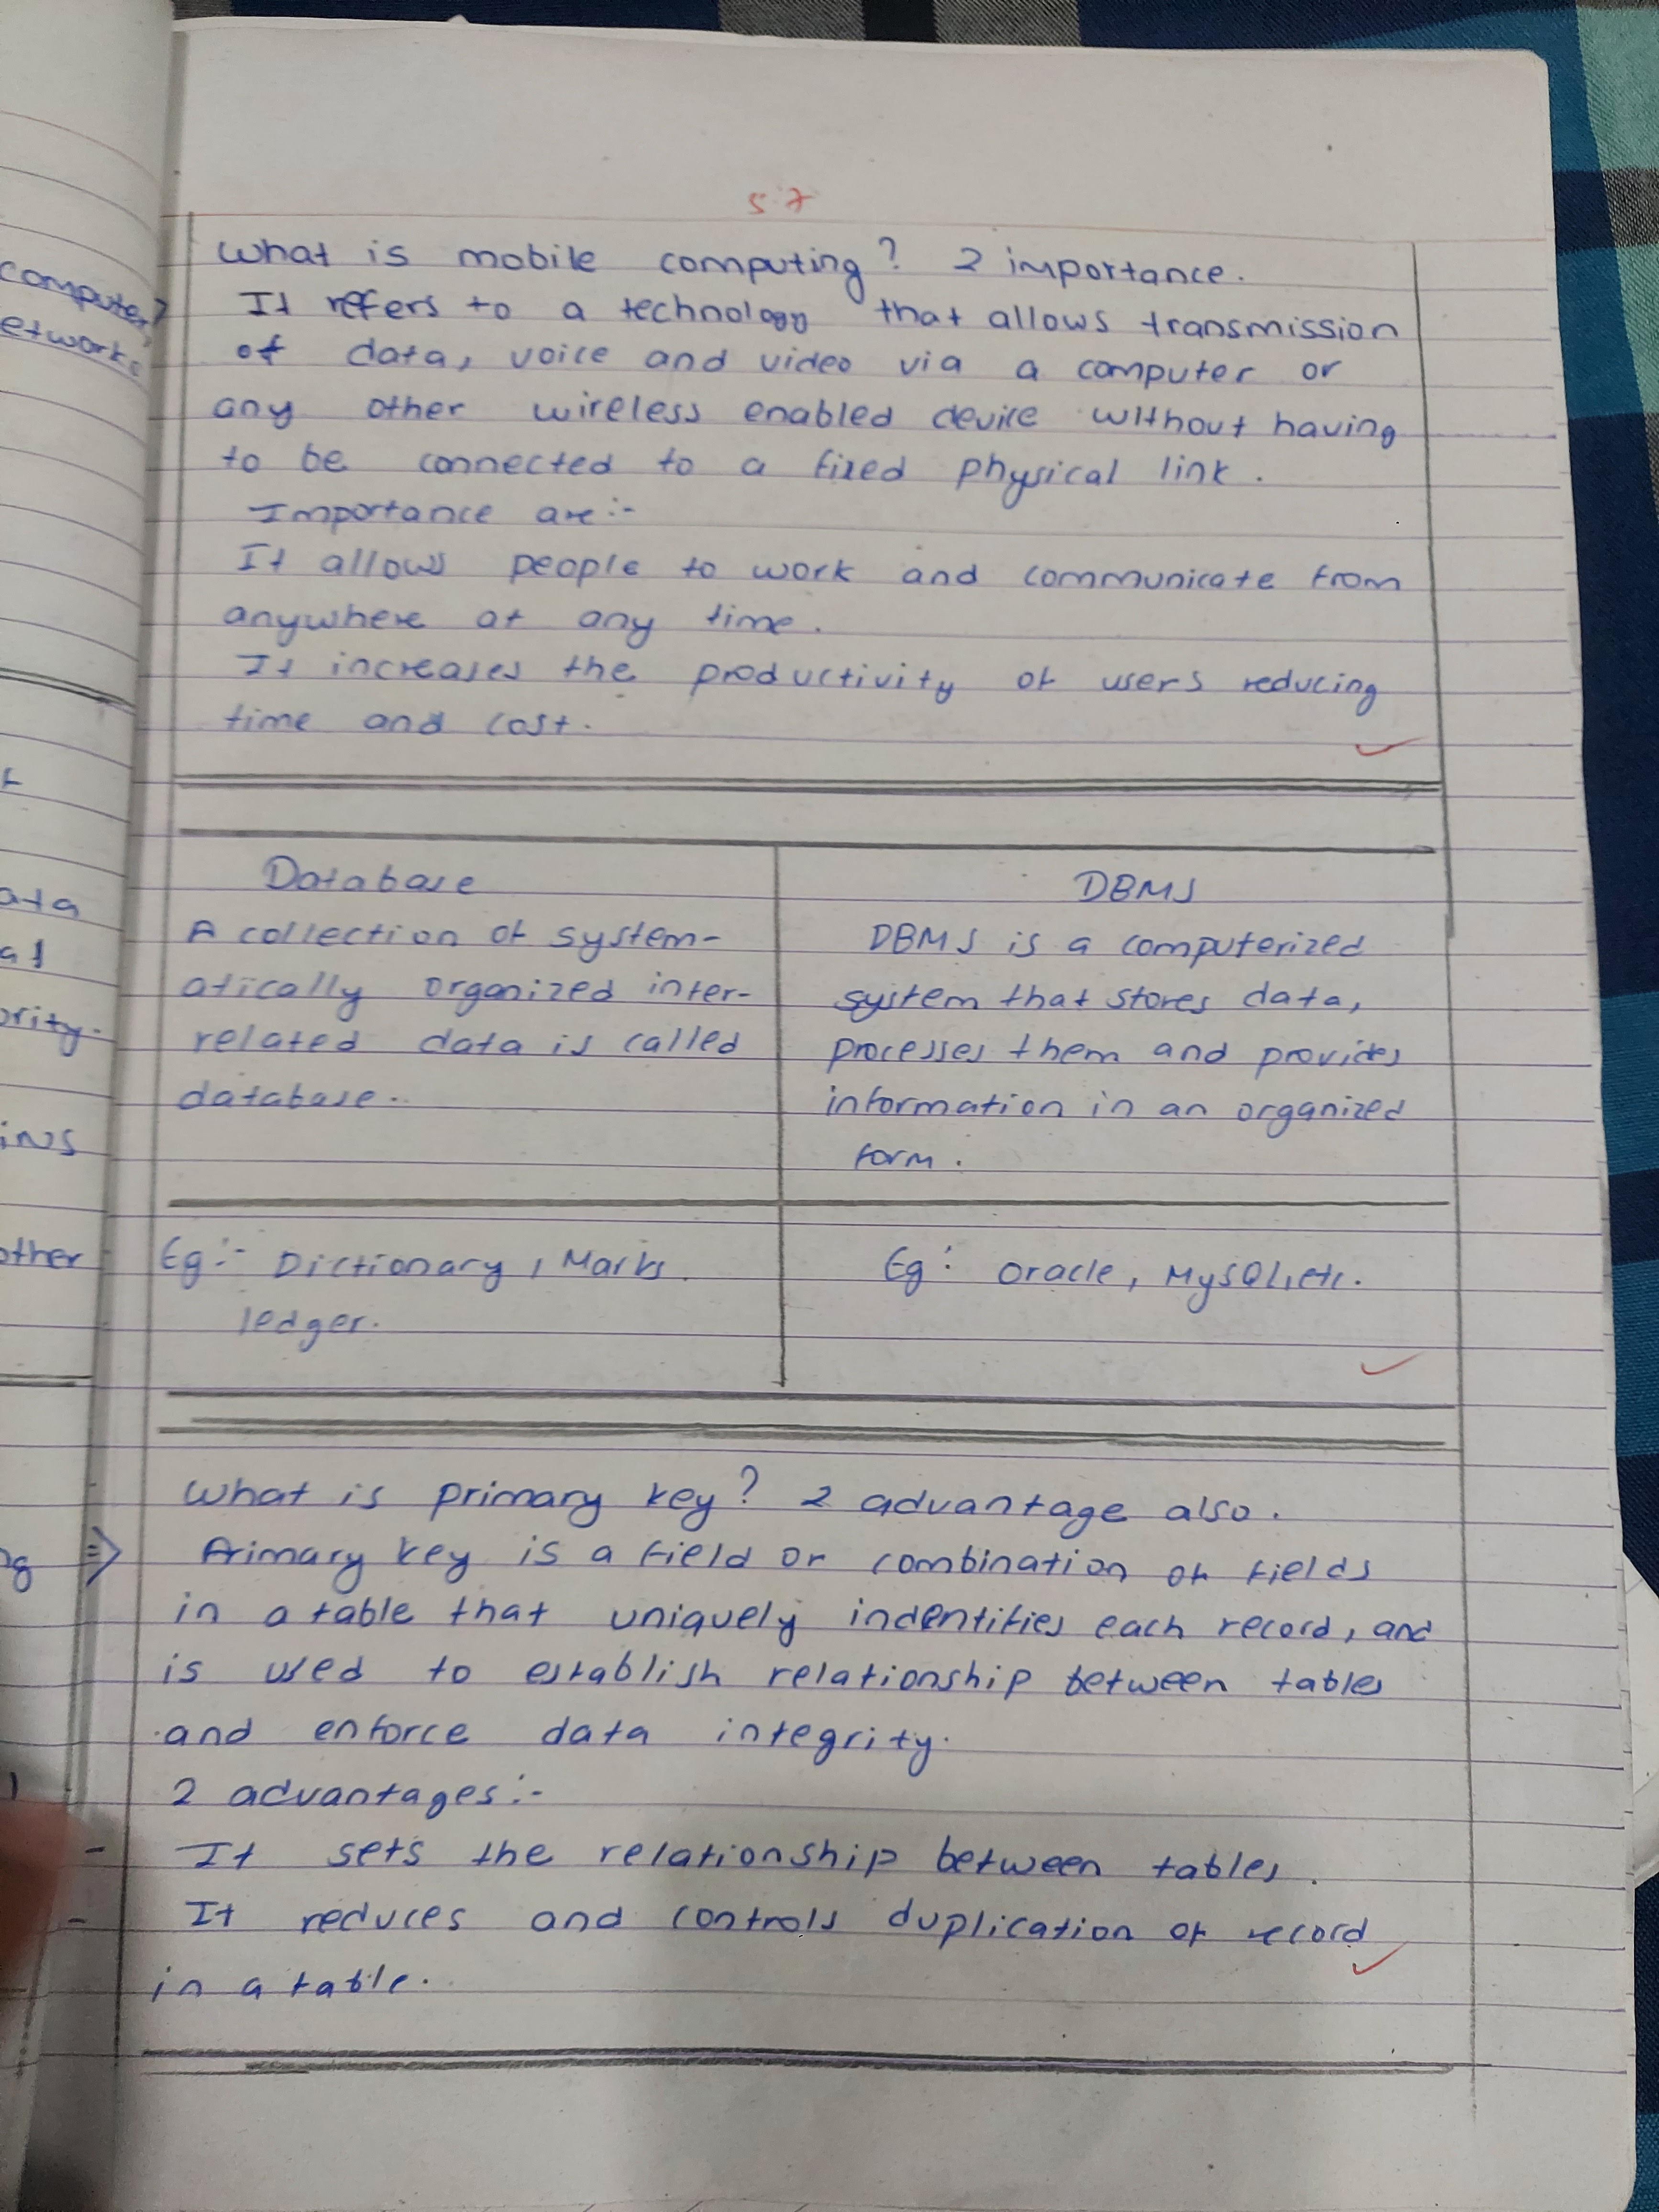 5.7
What is mobile computing? 2 importance.
It refers to a technology that allows transmission
of data, voice and video via a computer or
any other wireless enabled device without having
to be connected to a fixed physical link.
Importance are:-
It allows people to work and communicate from
anywhere at any time.
It increases the productivity of users reducing
time and cost.
Database
A collection of system-
atically organized inter-
related data is called
database.
Eg:- Dictionary, Marks
ledger.
DBMS
DBMS is a computerized
system that stores data,
processes them and provides
information in an organized
form.
Eg: Oracle, MySQL, etc.
What is primary key? 2 advantage also.
=> Primary key is a field or combination of fields
in a table that uniquely indentifies each record, and
is used to establish relationship between tables
and enforce data integrity.
2 advantages:-
- It sets the relationship between tables.
- It reduces and controls duplication of record
in a table.
computer
etworks
ority.
other